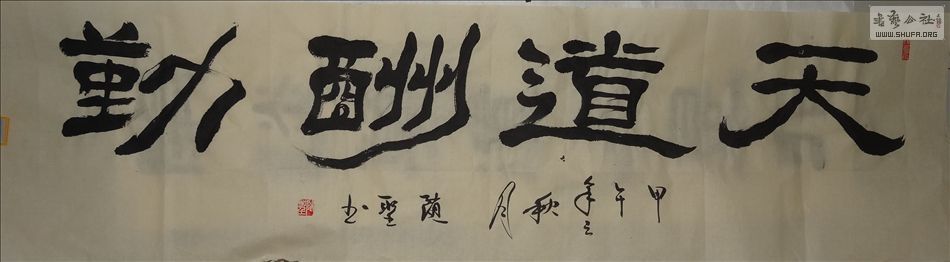 天道酬勤
甲午年之秋月 随聖书
书艺公社
WWW.SHUFA.ORG